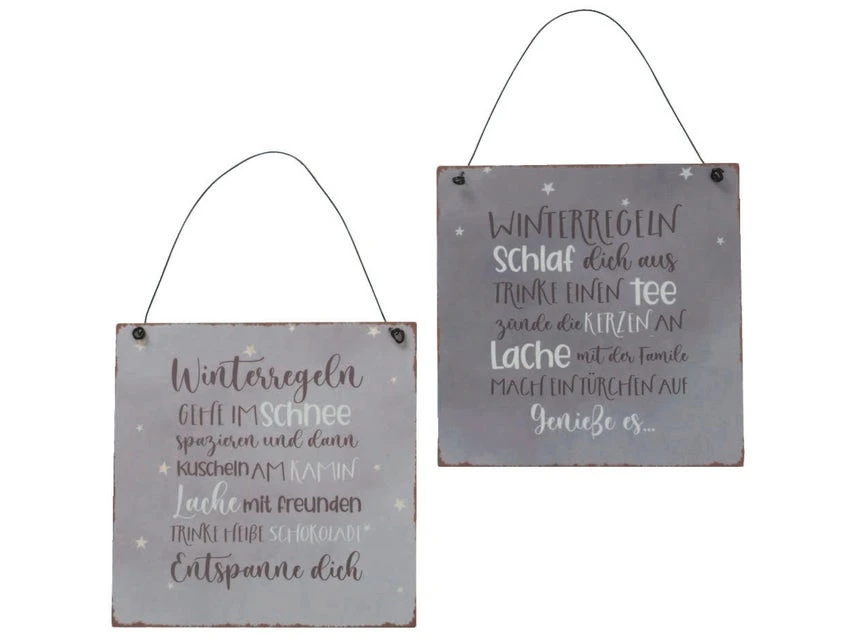 Winterregeln
GEHE IM Schnee
spazieren und dann
kuscheln AM KAMIN
Lache mit freunden
TRINKE HEIßE SCHOKOLADE*
Entspanne dich
WINTERREGELN
Schlaf dich aus
TRINKE EINEN Tee
zünde die KERZEN AN
Lache mit der Famile
MACH EIN TÜRCHEN AUF
Genieße es...